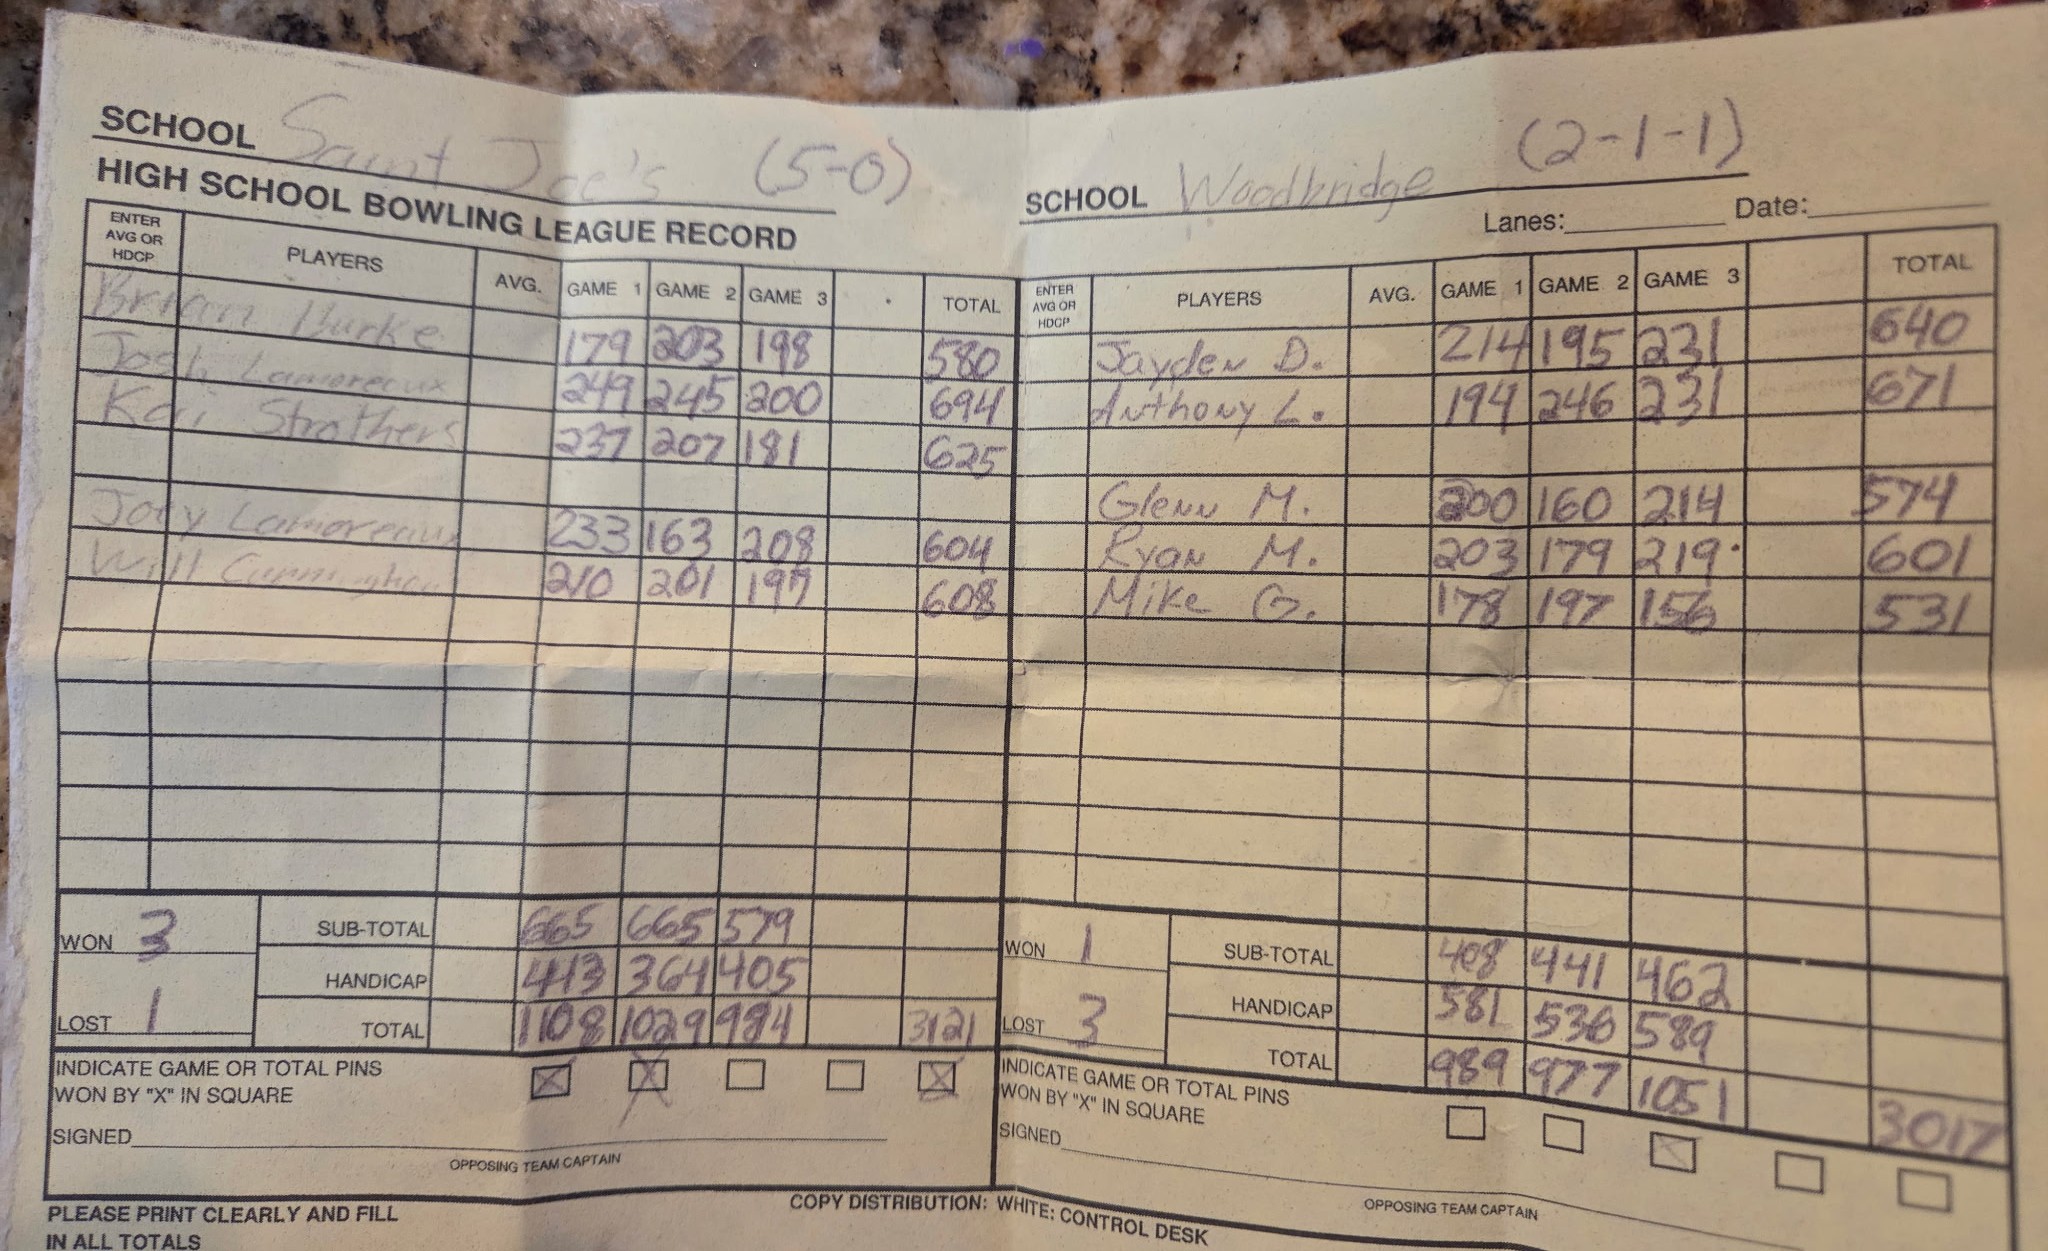 SCHOOL Saint Joe's (5-0)
HIGH SCHOOL BOWLING LEAGUE RECORD
ENTER AVG OR HDCP PLAYERS AVG. GAME 1 GAME 2 GAME 3 TOTAL
Brian Burke 179 203 198 580
Josh Lamoreaux 249 245 200 694
Kai Strothers 237 207 181 625
Joey Lamoreaux 233 163 208 604
Will Cunningham 210 201 197 608
WON 3
LOST 1
SUB-TOTAL 665 665 579
HANDICAP 443 364 405
TOTAL 1108 1029 984 3121
INDICATE GAME OR TOTAL PINS
WON BY "X" IN SQUARE X X X
SIGNED
OPPOSING TEAM CAPTAIN
SCHOOL Woodbridge (2-1-1)
Lanes: Date:
ENTER AVG OR HDCP PLAYERS AVG. GAME 1 GAME 2 GAME 3 TOTAL
Jayden D. 214 195 231 640
Anthony L. 194 246 231 671
Glenn M. 200 160 214 574
Ryan M. 203 179 219 601
Mike G. 178 197 156 531
WON 1
LOST 3
SUB-TOTAL 408 441 462
HANDICAP 581 536 589
TOTAL 989 977 1051 3017
INDICATE GAME OR TOTAL PINS
WON BY "X" IN SQUARE X
SIGNED
OPPOSING TEAM CAPTAIN
PLEASE PRINT CLEARLY AND FILL
IN ALL TOTALS
COPY DISTRIBUTION: WHITE: CONTROL DESK